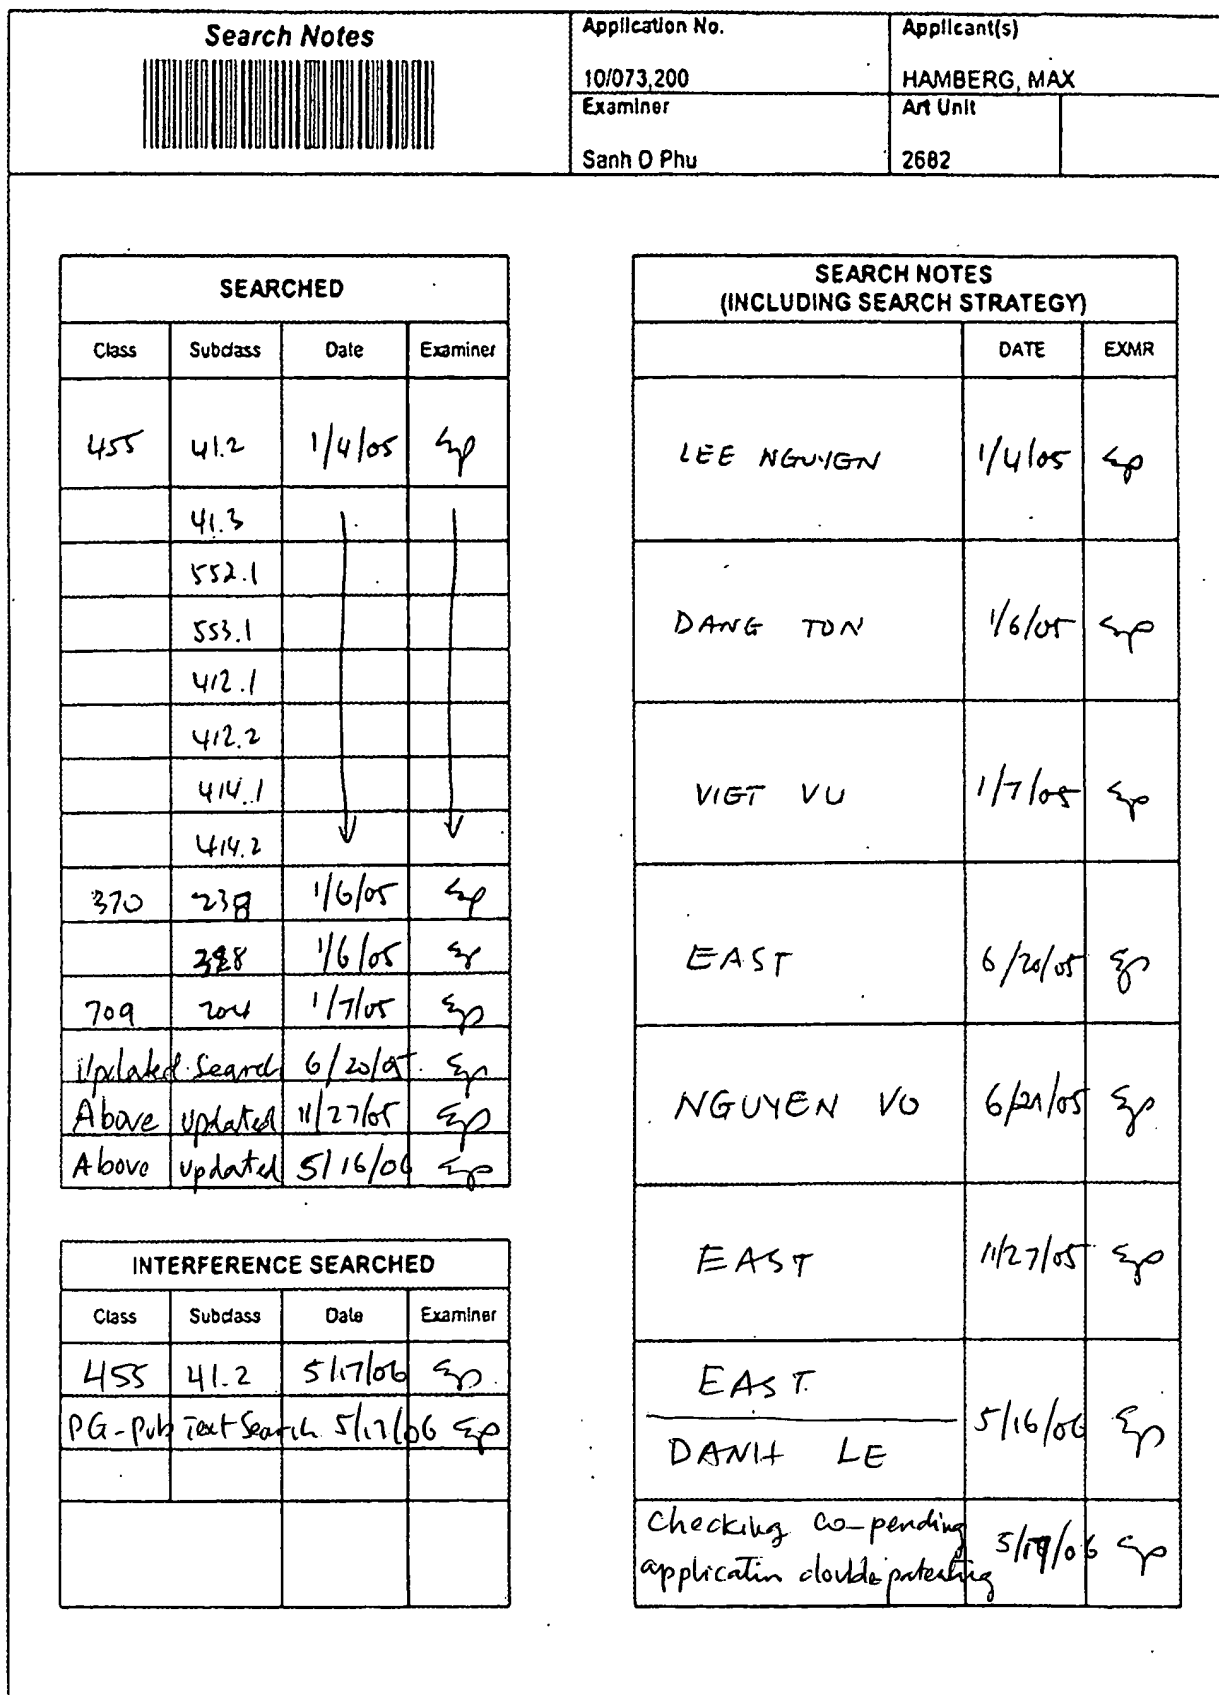 Search Notes
Application No.
Applicant(s)
10/073,200
HAMBERG, MAX
Examiner
Art Unit
Sanh D Phu
2682
SEARCHED
Class Subclass Date Examiner
455 41.2 1/4/05
41.3
552.1
553.1
412.1
412.2
414.1
414.2
370 238 1/6/05
1/6/05
709 204 1/7/05
Updated Search 6/20/05
Above updated 11/27/05
Above updated 5/16/06
INTERFERENCE SEARCHED
Class Subclass Date Examiner
455 41.2 5/17/06
PG-Pub Text Search 5/17/06
SEARCH NOTES
(INCLUDING SEARCH STRATEGY)
DATE EXMR
LEE NGUYEN 1/4/05
DANG TON 1/6/05
VIET VU 1/7/05
EAST 6/20/05
NGUYEN VO 6/21/05
EAST 11/27/05
EAST
DANH LE 5/16/06
Checking co-pending
applicatin double patenting